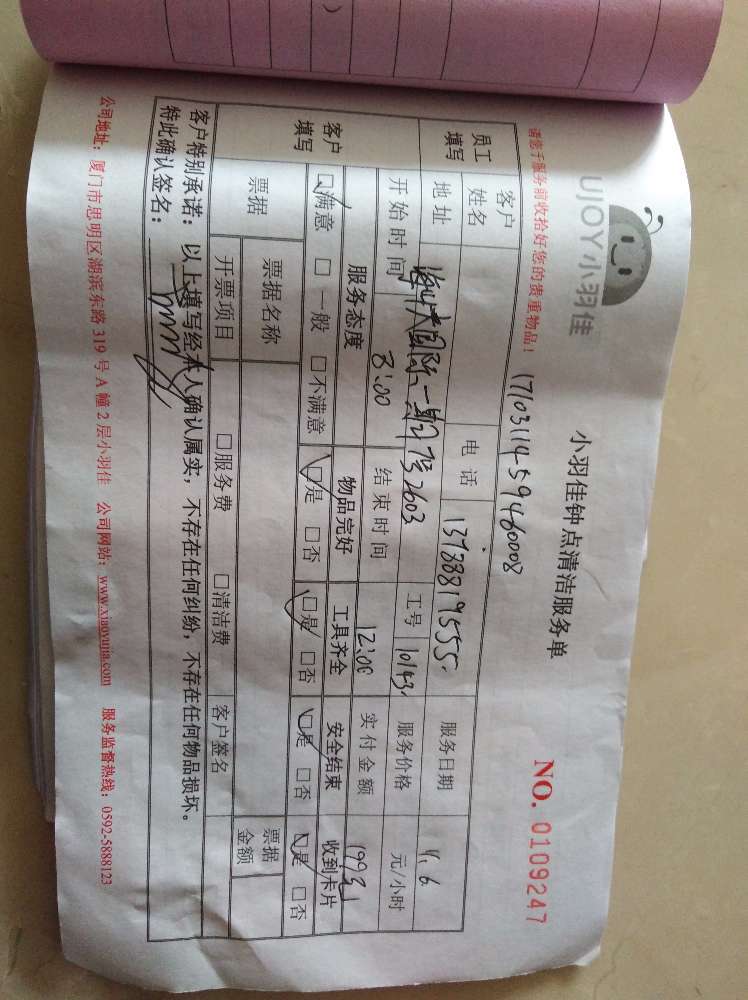 UJOY小羽佳
小羽佳钟点清洁服务单
NO. 0109247
请您于服务前收拾好您的贵重物品！
1710311459460008
员工填写
客户姓名
电话 13788819555
服务日期 4.6
地址 国际一期 2603
工号 10143
服务价格 元/小时
开始时间 8:00
结束时间 12:00
实付金额 199元
客户填写
服务态度 物品完好 工具齐全 安全结束 收到卡片
☑满意 □一般 □不满意 ☑是 □否 ☑是 □否 ☑是 □否 ☑是 □否
票据
票据名称
客户签名
票据金额
开票项目 □服务费 □清洁费
客户特别承诺：以上填写经本人确认属实，不存在任何纠纷，不存在任何物品损坏。
特此确认签名：
公司地址：厦门市思明区湖滨东路319号A幢2层小羽佳 公司网站：www.xiaoyujia.com 服务监督热线：0592-5888123